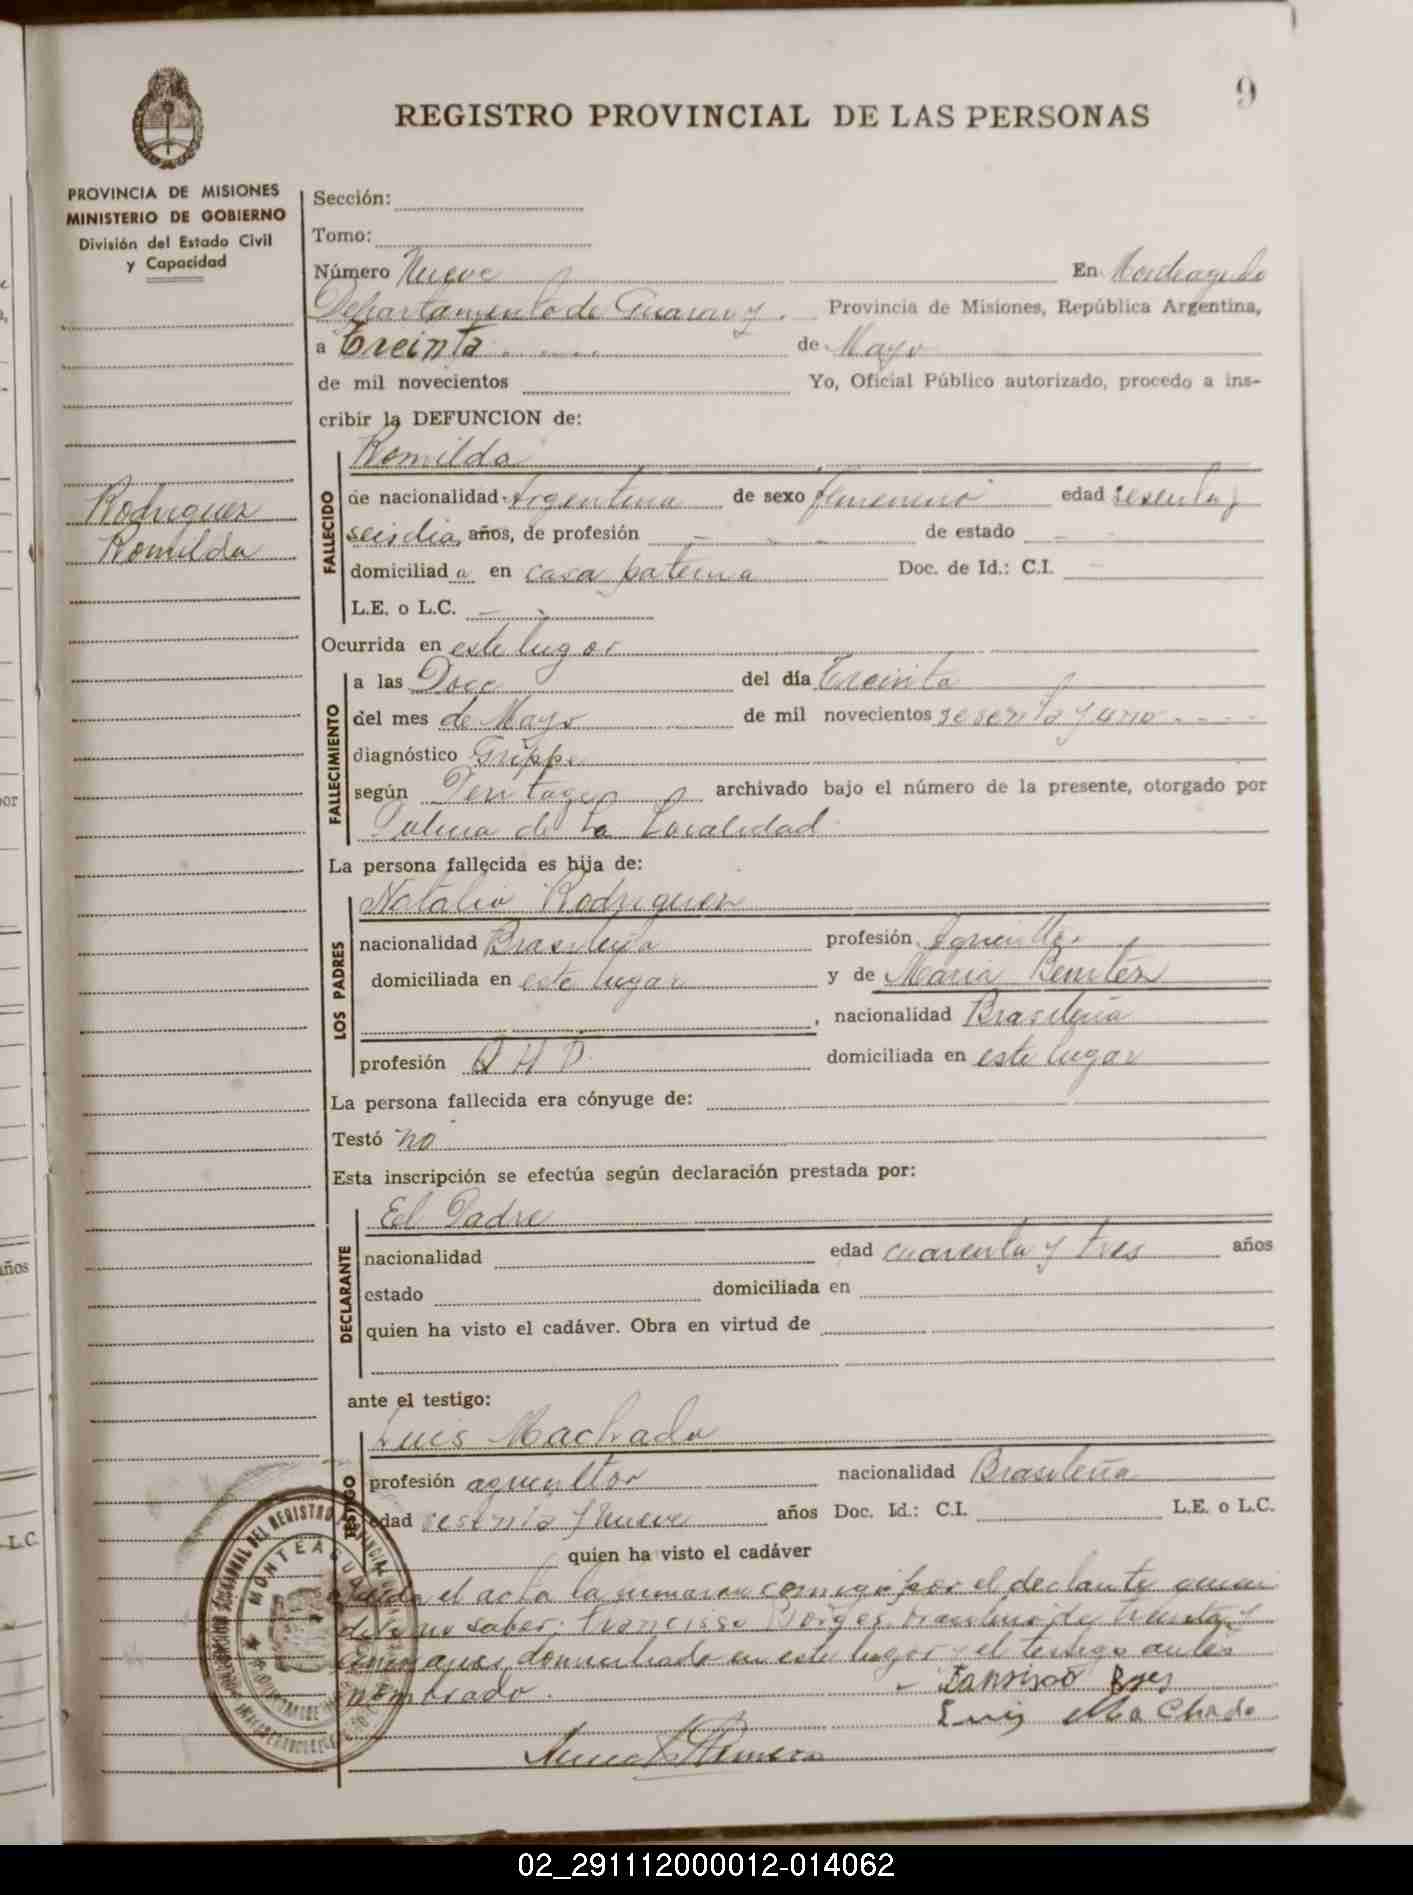 9
REGISTRO PROVINCIAL DE LAS PERSONAS
PROVINCIA DE MISIONES
MINISTERIO DE GOBIERNO
División del Estado Civil
y Capacidad
Sección:
Tomo:
Número Nueve En Monteagudo
Departamento de Guarany. Provincia de Misiones, República Argentina,
a Treinta de Mayo
de mil novecientos Yo, Oficial Público autorizado, procedo a ins-
cribir la DEFUNCION de:
Rodriguez
Romilda
FALLECIDO
Romilda
de nacionalidad Argentina de sexo femenino edad sesenta y
seis dia años, de profesión de estado
domiciliad a en casa paterna Doc. de Id.: C.I.
L.E. o L.C.
Ocurrida en este lugar
FALLECIMIENTO
a las Doce del día Treinta
del mes de Mayo de mil novecientos sesenta y uno
diagnóstico Grippe
según archivado bajo el número de la presente, otorgado por
de la Localidad
La persona fallecida es hija de:
LOS PADRES
Natalio Rodriguez
nacionalidad Brasileña profesión
domiciliada en este lugar y de Maria Benitez
, nacionalidad Brasileña
profesión Q H D. domiciliada en este lugar
La persona fallecida era cónyuge de:
Testó no
Esta inscripción se efectúa según declaración prestada por:
DECLARANTE
El Padre
nacionalidad edad cuarenta y tres años
estado domiciliada en
quien ha visto el cadáver. Obra en virtud de
ante el testigo:
TESTIGO
Luis Machado
profesión agricultor nacionalidad Brasileña
edad sesenta y nueve años Doc. Id.: C.I. L.E. o L.C.
quien ha visto el cadáver
el acta la firmaron conmigo por el declarante quien
dijo no saber, Francisco Borges, brasileño de treinta y
años domiciliado en este lugar y el testigo antes
nombrado.
Luis Machado
MONTEAGUDO
02_291112000012-014062